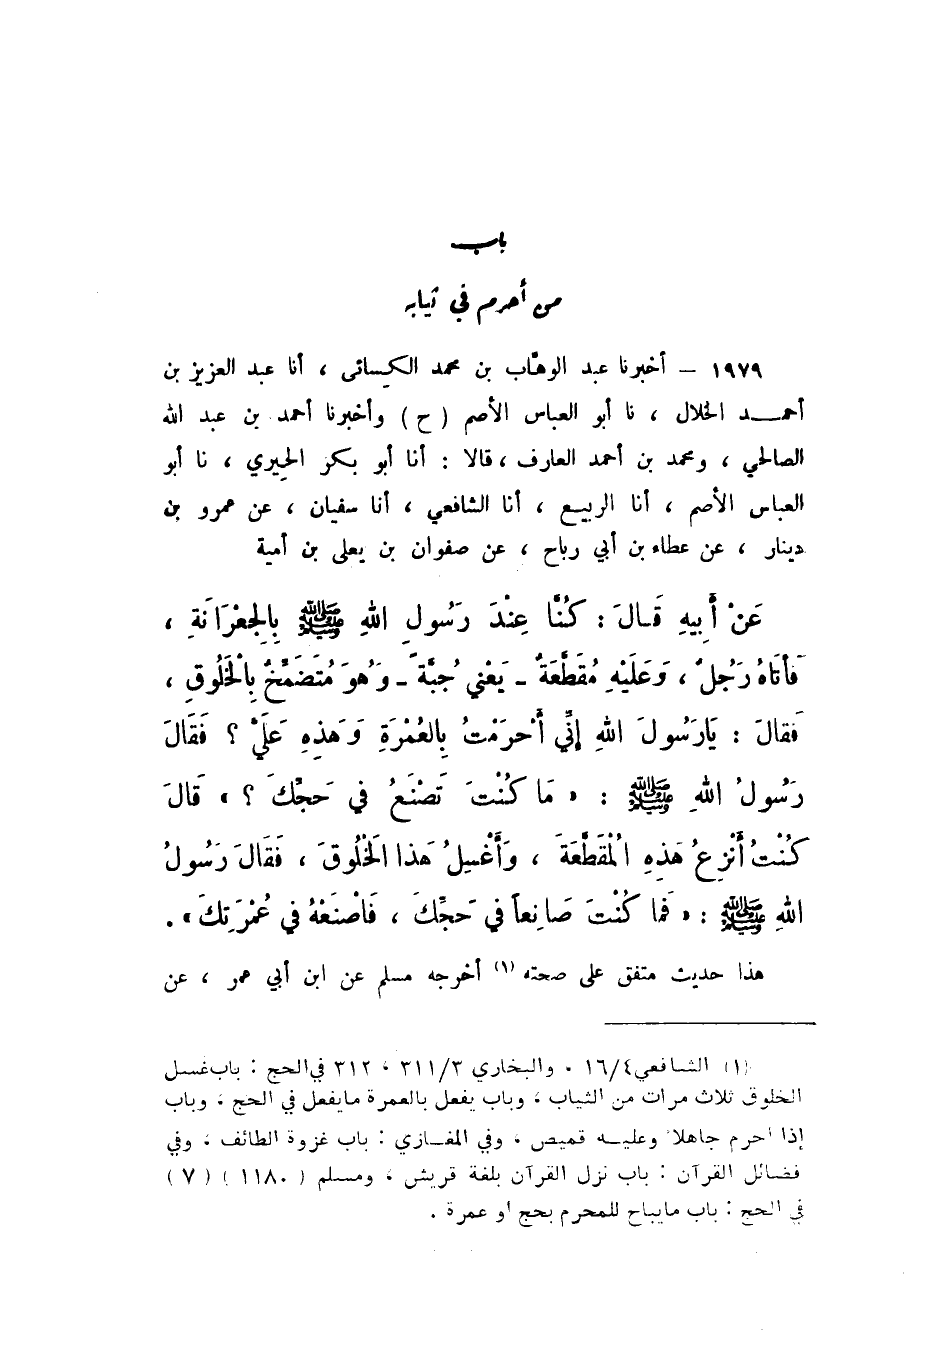 باب
من أحرم في ثيابه
١٩٧٩ – أخبرنا عبد الوهّاب بن محمد الكِسائي ، أنا عبد العزيز بن
أحمد الخلال ، نا أبو العباس الأصم ( ح ) وأخبرنا أحمد بن عبد الله
الصالحي ، ومحمد بن أحمد العارف ، قالا : أنا أبو بكر الحِيري ، نا أبو
العباس الأصم ، أنا الربيع ، أنا الشافعي ، أنا سفيان ، عن عمرو بن
دينار ، عن عطاء بن أبي رباح ، عن صفوان بن يعلى بن أمية
عَنْ أَبِيهِ قَالَ : كُنَّا عِنْدَ رَسُولِ اللهِ ﷺ بِالجِعْرَانَةِ ،
فَأَتَاهُ رَجُلٌ ، وَعَلَيْهِ مُقَطَّعَةٌ - يَعْني جُبَّةً - وَهُوَ مُتَضَمِّخٌ بِالْخَلُوقِ ،
فَقَالَ : يَارَسُولَ اللهِ إِنِّي أَحْرَمْتُ بِالعُمْرَةِ وَهَذِهِ عَلَيَّ ؟ فَقَالَ
رَسُولُ اللهِ ﷺ : « مَا كُنْتَ تَصْنَعُ في حَجِّكَ ؟ » قَالَ
كُنْتُ أَنْزِعُ هَذِهِ الْمُقَطَّعَةَ ، وَأَغْسِلُ هَذا الْخَلُوقَ ، فَقَالَ رَسُولُ
اللهِ ﷺ : « فَمَا كُنْتَ صَانِعاً في حَجِّكَ ، فَاصْنَعْهُ في عُمْرَتِكَ » .
هذا حديث متفق على صحته (١) أخرجه مسلم عن ابن أبي عمر ، عن
(١) الشافعي ١٦/٤ . والبخاري ٣١١/٣ ، ٣١٢ في الحج : باب غسل
الخلوق ثلاث مرات من الثياب ، وباب يفعل بالعمرة مايفعل في الحج ، وباب
إذا أحرم جاهلا وعليه قميص ، وفي المغازي : باب غزوة الطائف ، وفي
فضائل القرآن : باب نزل القرآن بلغة قريش ، ومسلم ( ١١٨٠ ) ( ٧ )
في الحج : باب مايباح للمحرم بحج أو عمرة .